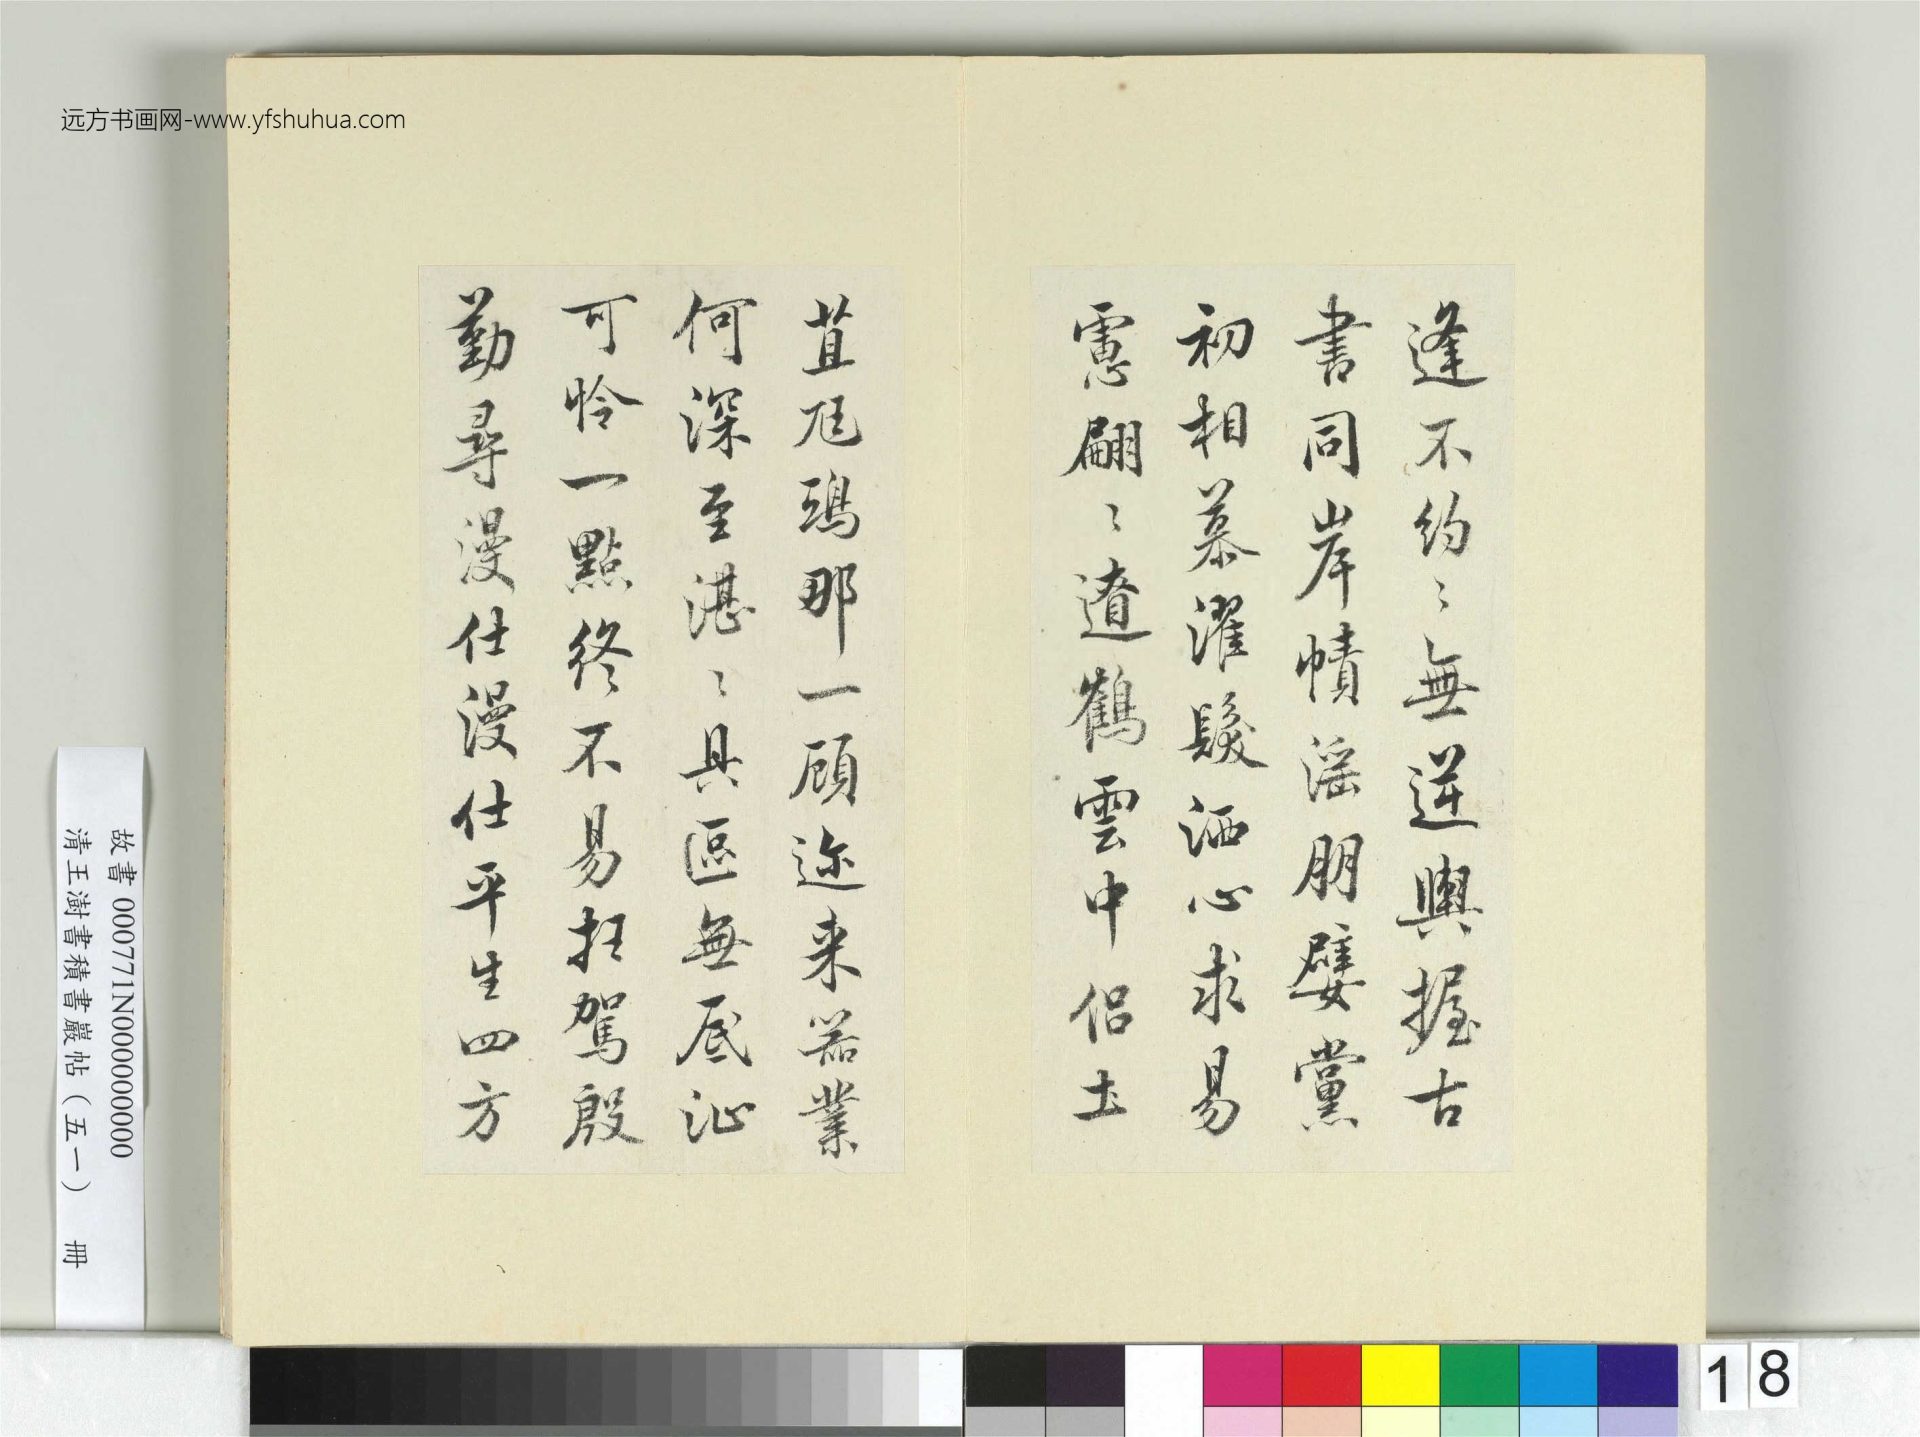 远方书画网-www.yfshuhua.com
逢不約〻無逆輿握古
書同岸幘滛朋嬖黨
初相慕濯髮洒心求易
慮翩〻遼鶴雲中侶土
苴尫鴟那一顧迩来器業
何深至湛〻具區無底沚
可怜一點終不易抂駕殷
勤尋漫仕漫仕平生四方
故書 000771N000000000
清王澍書積書巖帖（五一） 冊
18